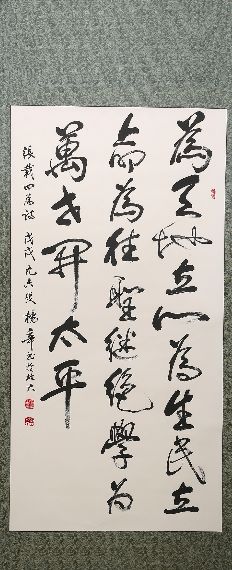 為天地立心為生民立
命為往聖継绝學为
萬世開太平
張載四為語 戊戌